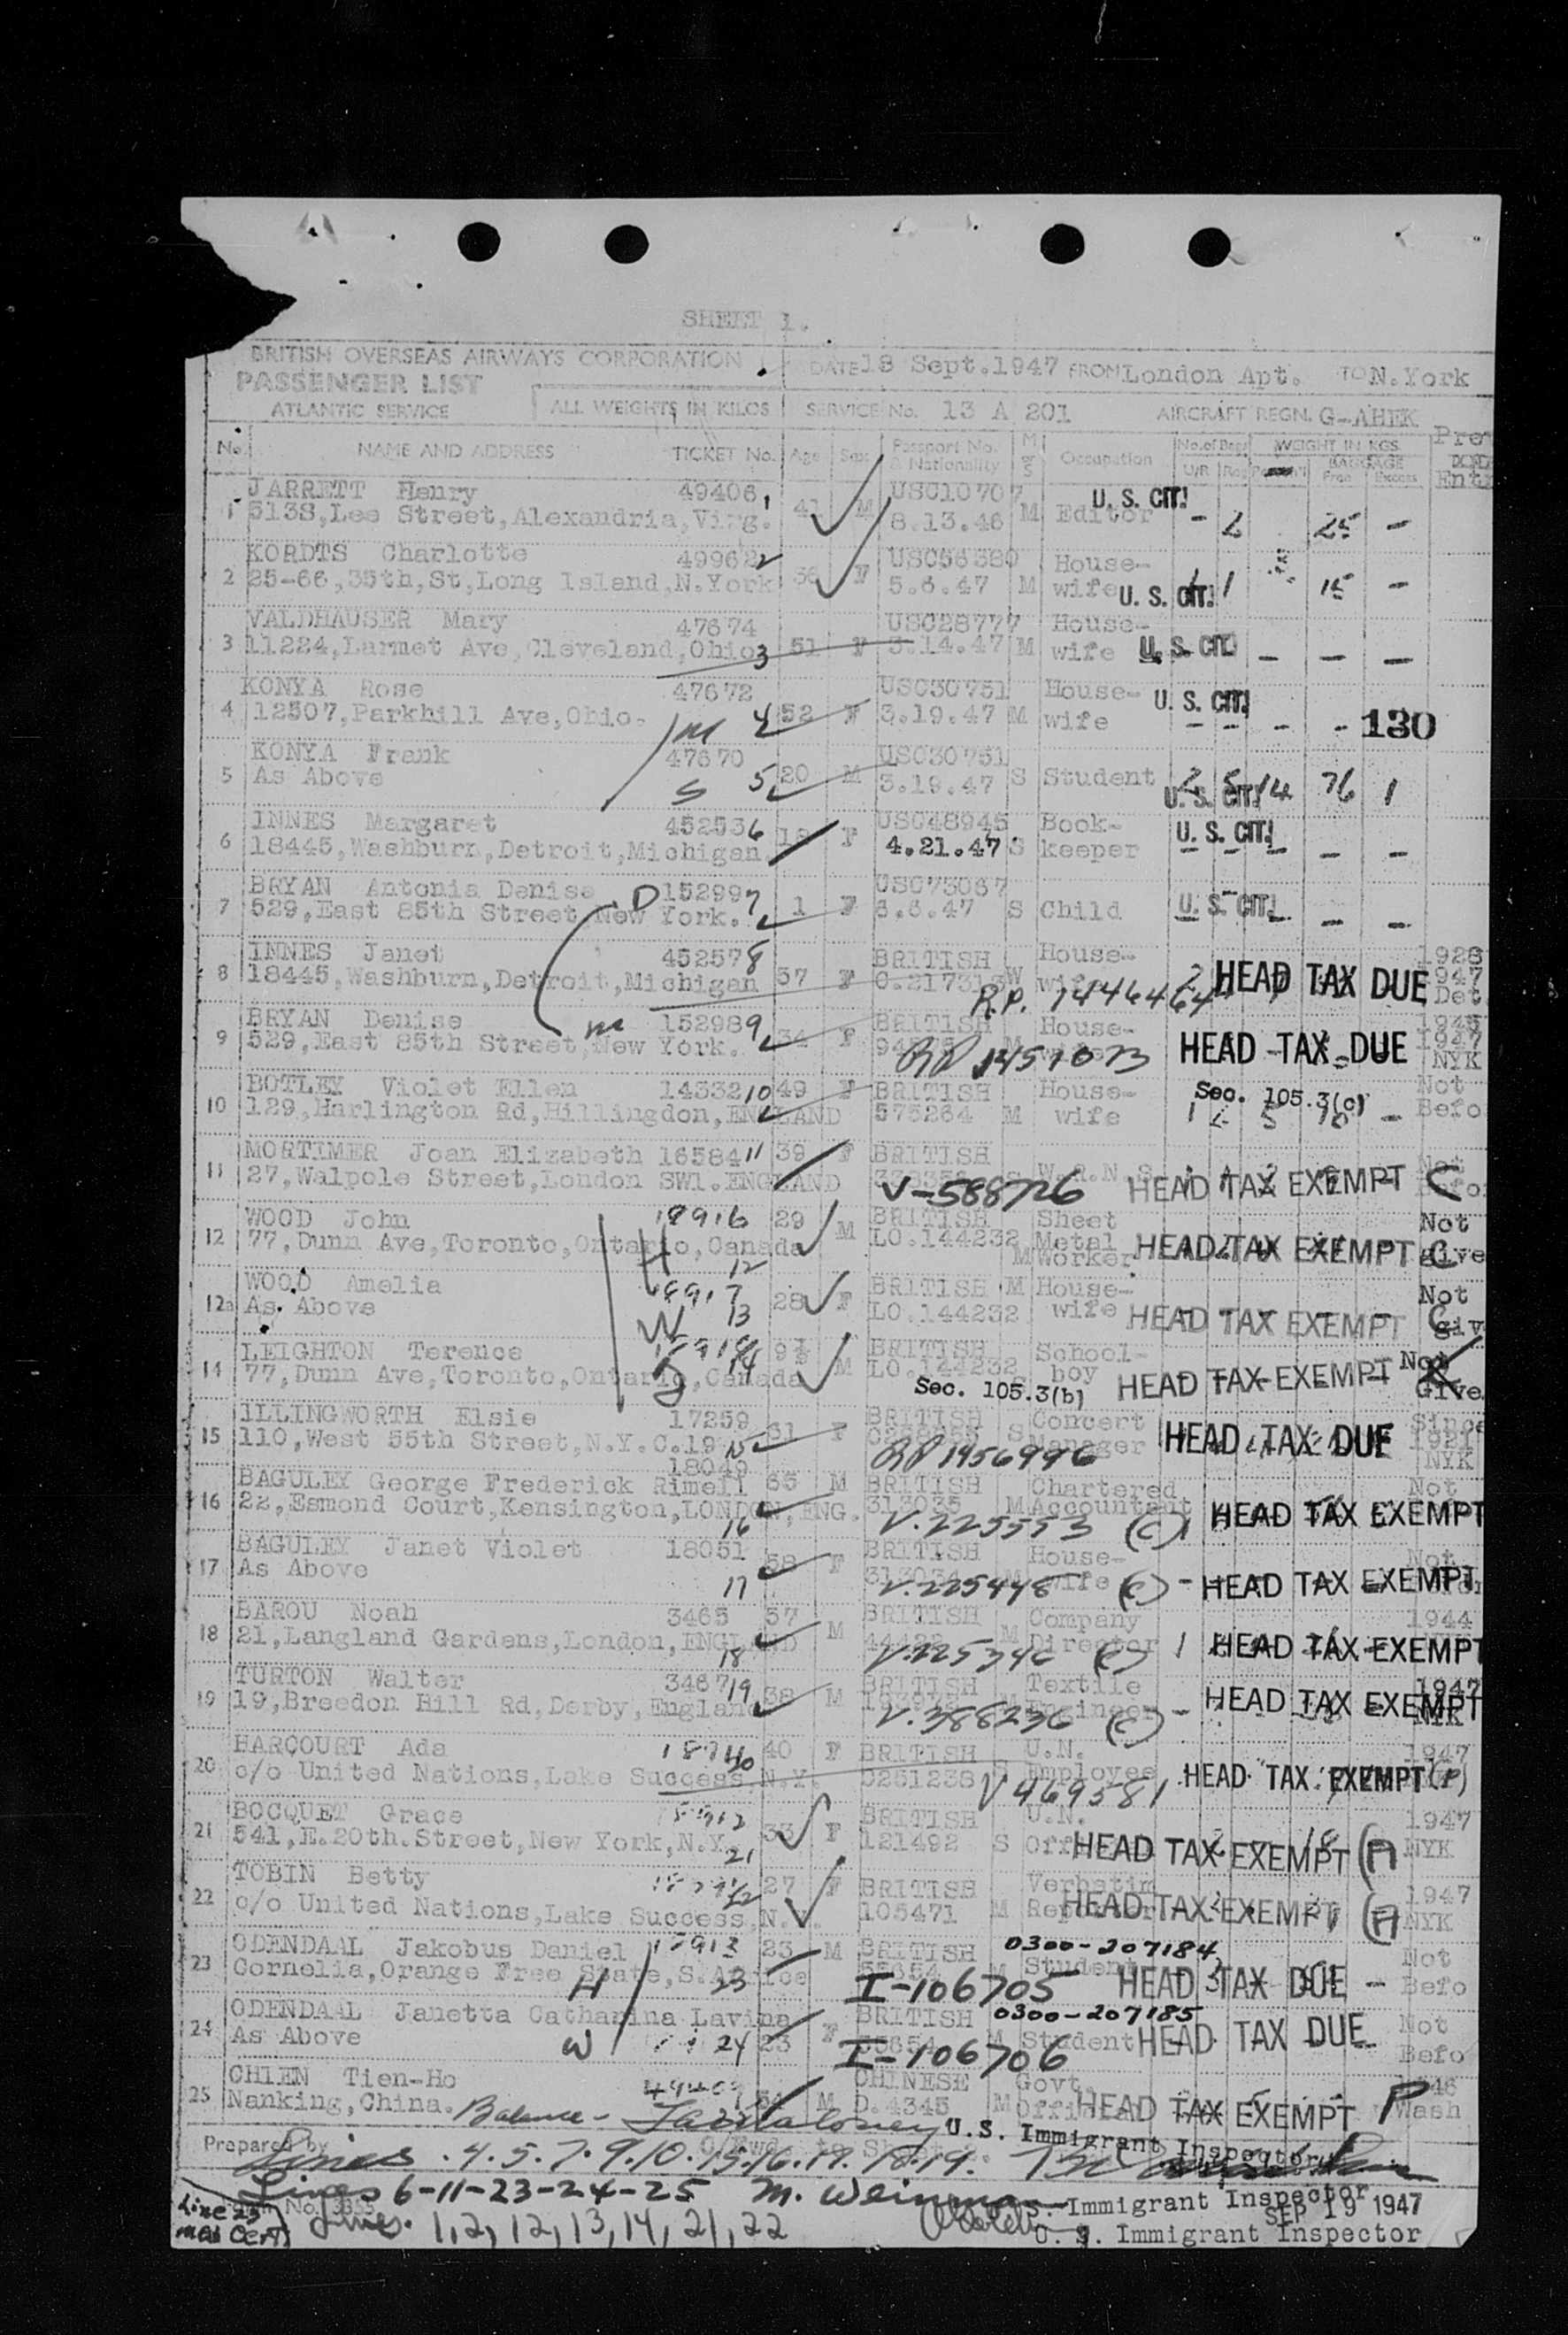 SHEET 1.
BRITISH OVERSEAS AIRWAYS CORPORATION DATE 18 Sept.1947 FROM London Apt. TO N.York
PASSENGER LIST
ATLANTIC SERVICE ALL WEIGHTS IN KILOS SERVICE No. 13 A 201 AIRCRAFT REGN. G-AHEK
No. NAME AND ADDRESS TICKET No. Age Sex Passport No. & Nationality M or S Occupation No. of Bags WEIGHT IN KGS
U/R Reg BAGGAGE Free Excess
JARRETT Henry 49406 1 USC10707 U. S. CIT.
1 5138, Lee Street, Alexandria, Virg. 41 M 8.13.46 M Editor - 2 25 -
KORDTS Charlotte 49962 2 USC56380 House-
2 25-66, 35th, St, Long Island, N.York 36 F 5.6.47 M wife U. S. CIT. 1 15 -
VALDHAUSER Mary 47674 USC28777 House-
3 11224, Larmet Ave, Cleveland, Ohio 3 51 F 3.14.47 M wife U. S. CIT. - - -
KONYA Rose 47672 USC30751 House- U. S. CIT.
4 12507, Parkhill Ave, Ohio. m 4 52 F 3.19.47 M wife - - - - 130
KONYA Frank 47670 USC30751
5 As Above S 5 20 M 3.19.47 S Student 14 76 1
U. S. CIT.
INNES Margaret 45253 6 USC48945 Book- U. S. CIT.
6 18445, Washburn, Detroit, Michigan. 18 F 4.21.47 S keeper - - - - -
BRYAN Antonia Denise D 15299 7 USC73067
7 529, East 85th Street, New York. 1 F 6.6.47 S Child U. S. CIT. - -
INNES Janet 45257 8 BRITISH House- 1928
8 18445, Washburn, Detroit, Michigan 57 F C.217313 W wife HEAD TAX DUE 1947
R.P. 1446464 Det.
BRYAN Denise m 15298 9 BRITISH House- 1945
9 529, East 85th Street, New York. 34 F RP 1451073 HEAD TAX DUE 1947 NYK
BOTLEY Violet Ellen 14332 10 49 F BRITISH House- Sec. 105.3(c) Not
10 129, Harlington Rd, Hillingdon, ENGLAND 575264 M wife Befo
MORTIMER Joan Elizabeth 16584 11 39 F BRITISH
11 27, Walpole Street, London SW1. ENGLAND V-588726 HEAD TAX EXEMPT C
WOOD John 18916 29 BRITISH Sheet Not
12 77, Dunn Ave, Toronto, Ontario, Canada H 12 M LO.144232 M Metal Worker HEAD TAX EXEMPT C give
WOOD Amelia 18917 BRITISH M House- Not
12a As Above W 13 28 F LO.144232 wife HEAD TAX EXEMPT C giv
LEIGHTON Terence 14 9½ BRITISH School- Not
14 77, Dunn Ave, Toronto, Ontario, Canada M LO.144232 boy HEAD TAX EXEMPT Give
Sec. 105.3(b)
ILLINGWORTH Elsie 17259 BRITISH Concert Since
15 110, West 55th Street, N.Y.C.19 15 F S Manager HEAD TAX DUE 1921
RP 1456996 NYK
18049
BAGULEY George Frederick Rimell 65 M BRITISH Chartered Not
16 22, Esmond Court, Kensington, LONDON, ENG. 313035 M Accountant HEAD TAX EXEMPT
16 V.225553 (C)
BAGULEY Janet Violet 18051 BRITISH House- Not
17 As Above 17 58 F V.225448 wife (C) - HEAD TAX EXEMPT
BAROU Noah 3465 57 BRITISH Company 1944
18 21, Langland Gardens, London, ENGLAND M M Director HEAD TAX EXEMPT
18 V.225346 (C)
TURTON Walter 3467 19 BRITISH Textile 1947
19 19, Breedon Hill Rd, Derby, England 38 M M Engineer - HEAD TAX EXEMPT NYK
V.388236 (C)
HARCOURT Ada 20 40 F BRITISH U.N. 1947
20 c/o United Nations, Lake Success, N.Y. C251238 S Employee HEAD TAX EXEMPT (P)
V 469581
BOCQUET Grace BRITISH U.N. 1947
21 541, E.20th. Street, New York, N.Y. 21 33 F 121492 S HEAD TAX EXEMPT (A) NYK
TOBIN Betty 22 27 F BRITISH Verbatim 1947
22 c/o United Nations, Lake Success, N.Y. 105471 M Reporter HEAD TAX EXEMPT (A) NYK
ODENDAAL Jakobus Daniel 23 M BRITISH 0300-207184 Not
23 Cornelia, Orange Free State, S.Africe H 23 M Student HEAD TAX DUE - Befo
I-106705
ODENDAAL Janetta Catharina Lavina BRITISH 0300-207185 Not
24 As Above W 24 23 F M Student HEAD TAX DUE Befo
I-106706
CHIEN Tien-Ho CHINESE Govt. 1946
25 Nanking, China. 54 M D.4345 M Official HEAD TAX EXEMPT P Wash
Balance - U.S. Immigrant Inspector
Prepared by
Lines 4.5.7.9.10.15.16.17.18.19.
Lines 6-11-23-24-25 M. Weinman U.S. Immigrant Inspector
Line 25 SEP 19 1947
Lines. 1, 2, 12, 13, 14, 21, 22 U. S. Immigrant Inspector